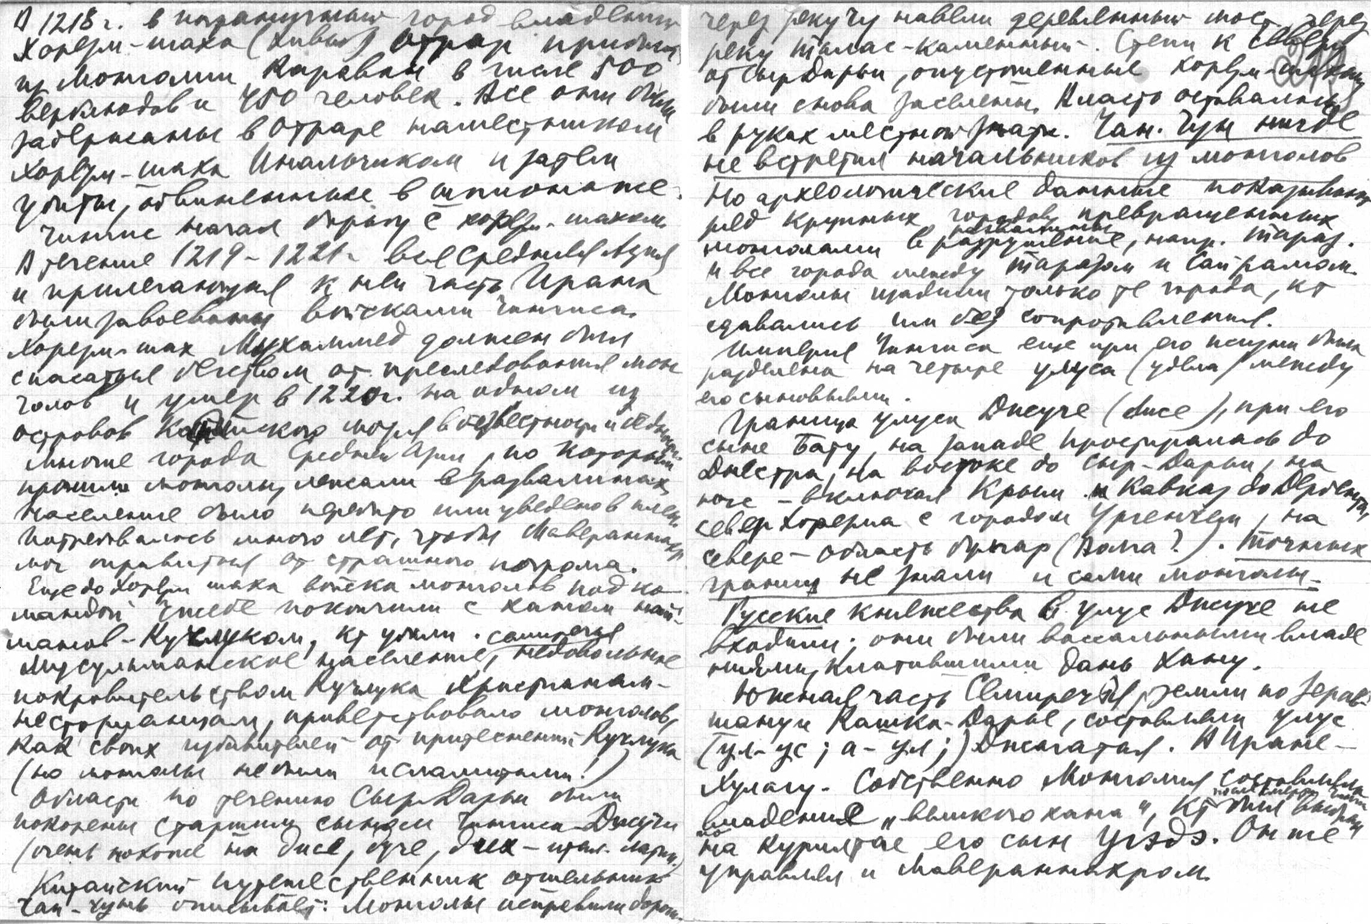 В 1218 г. в пограничный город владений
Хорезм-шаха (Хивы) Отрар прибыл
из Монголии караван в числе 500
верблюдов и 450 человек. Все они были
задержаны в Отраре наместником
Хорезм-шаха Инальчиком и затем
убиты, обвиненные в шпионаже.
Чингис начал борьбу с хорезм-шахом.
В течение 1219-1221 г. вся Средняя Азия
и прилегающая к ней часть Ирана
были завоеваны войсками Чингиса.
Хорезм-шах Мухаммед должен был
спасаться бегством от преследования мон-
голов и умер в 1220 г. на одном из
островов Каспийского моря в безвестности и бедности
Многие города Средней Азии, по которым
прошли монголы, лежали в развалинах,
население было перебито или уведено в плен.
Потребовалось много лет, чтобы Мавераннахр
мог оправиться от страшного погрома.
Еще до Хорезм шаха войска монголов под ко-
мандой Джебе покончили с ханом най-
манов - Кучлуком, кт убили.
Мусульманское население, недовольное
покровительством Кучлука христианам-
несторианцам, приветствовало монголов,
как своих избавителей от притеснений Кучлука
(но монголы не были исламитами!)
Области по течению Сыр-Дарьи были
покорены старшим сыном Чингиса - Джучи
(очень похоже на
Китайский путешественник отшельник
Чан-чунь описывает: Монголы исправили дороги,
через реку Чу навели деревянный мост, через
реку Талас - каменный. Степи к северу
от Сыр Дарьи, опустошенные хорезм-шахом
были снова заселены. Власть оставалась
в руках местной знати. Чан-Чун нигде
не встретил начальников из монголов
Но археологические данные показывают
ряд крупных городов, превращенных
монголами в развалины, напр. Тараз.
и все города между Таразом и Сайрамом.
Монголы щадили только те города, кт
сдавались им без сопротивления.
Империя Чингиса еще при его жизни была
разделена на четыре улуса (удела) между
его сыновьями.
Граница улуса Джуче (dисе), при его
сыне Бату, на западе простиралась до
Днестра, на востоке до Сыр-Дарьи, на
юге - включая Крым и Кавказ до Дербента,
север Хорезма с городом Ургенчем, на
севере - область булгар (Волга?). Точных
границ не знали и сами монголы.
Русские княжества в улус Джуче не
входили; они были вассальными владе-
ниями, платившими дань хану.
Южная часть Семиречья, земли по Зерав-
шану и Кашка-Дарье, составляли улус
(ул-ус; а-ул;) Джагатая. В Иране -
Хулагу. Собственно Монголия составляла
владения „великого хана", кт был выбран
на курилтае его сын Угэдэ. Он же
управлял и Мавераннахром